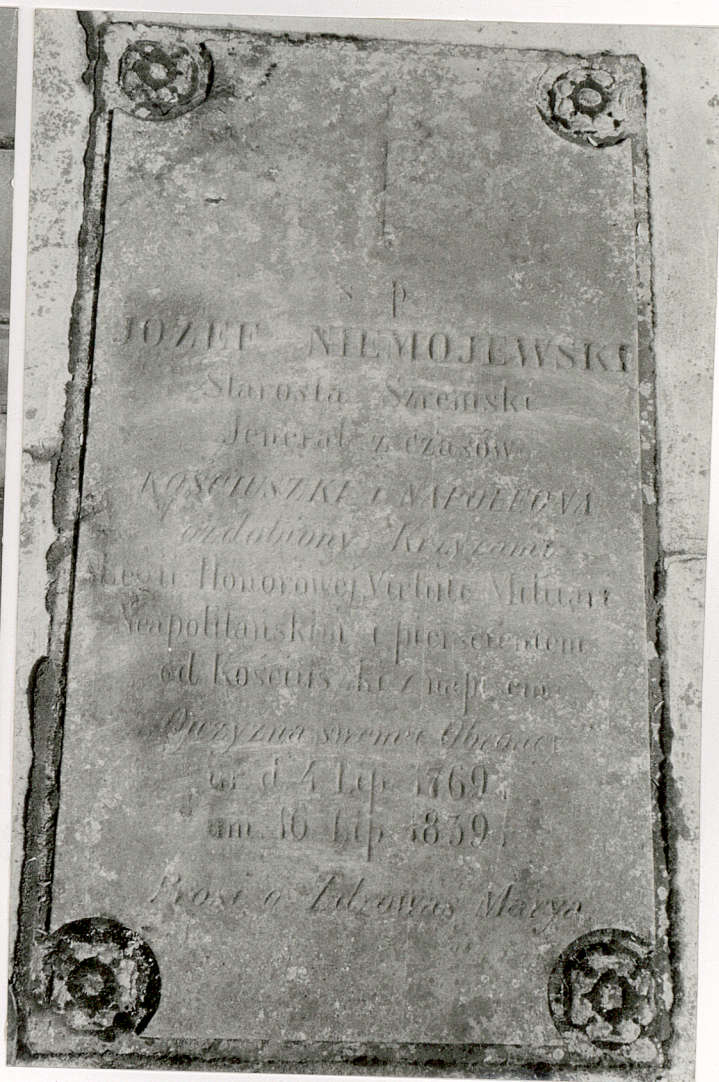 ś p
JÓZEF NIEMOJEWSKI
Starosta Szremski
Jenerał z czasów
KOŚCIUSZKI I NAPOLEONA
ozdobiony Krzyżami
Legii Honorowej Virtuti Militari
Neapolitańskim i pierścieniem
od Kościuszki z napisem
"Ojczyzna swemu Obrońcy"
ur d 4 Lip 1769
um 16 Lip 1839
Prosi o Zdrowaś Marya